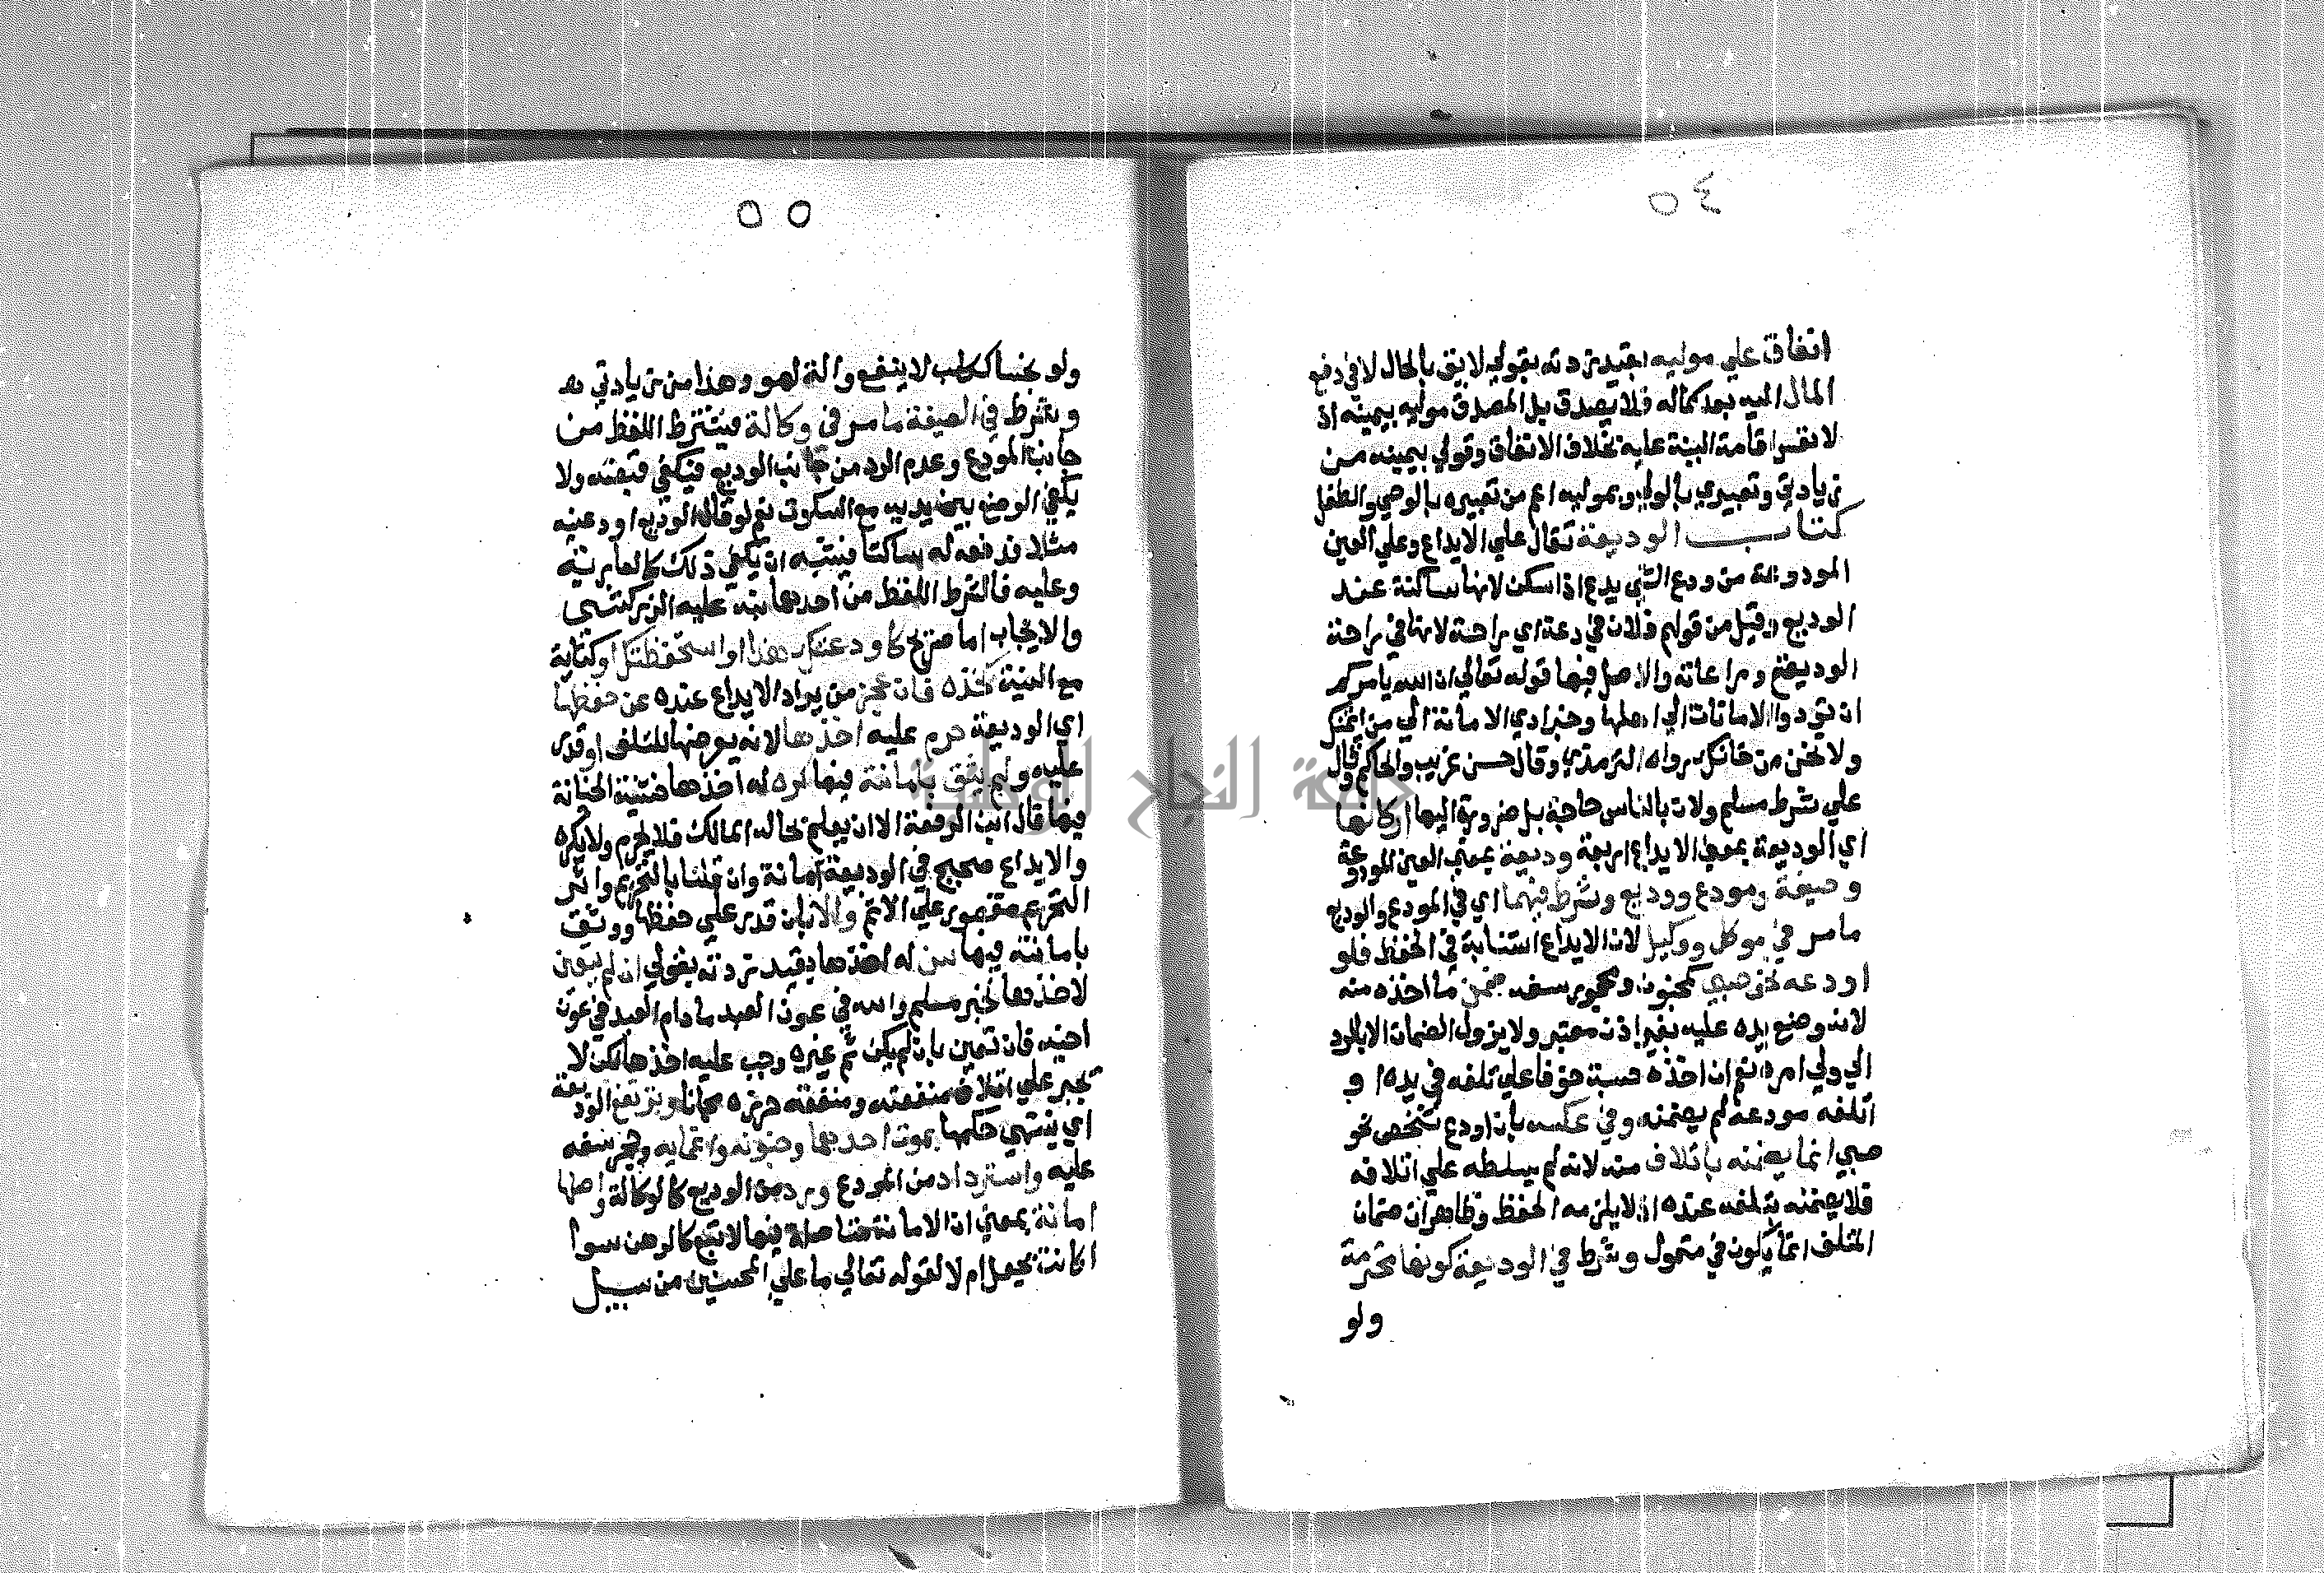 ٥٤
انفاق علي موليه اقتيد زدته بقولي لايق بالحال لا في دفع
المال اليه بعد كماله فلا يصدق بل المصدق موليه بيمينه اذ
لا يعسر اقامة البينة عليه بخلاف الانفاق وقولي بيمينه من
زيادتي وتعبيري بالولي وبموليه اعم من تعبيره بالوصي والطفل
كتاب الوديعة تقال علي الايداع وعلي العين
المودوعة من ودع الشي يدع اذا سكن لانها ساكنة عند
الوديع وقيل من قولهم فلان في دعة اي راحة لانها في راحة
الوديع ومراعاته والاصل فيها قوله تعالي ان الله يامركم
ان تؤدوا الامانات الي اهلها وخبر ادي الامانة الي من ايتمنك
ولا تخن من خانك رواه الترمذي وقال حسن غريب والحاكم وقال
علي شرط مسلم ولان بالناس حاجة بل ضرورة اليها اركانها
اي الوديعة بمعني الايداع اربعة وديعة بمعني العين المودوعة
وصيغة ومودع ووديع وشرط فيهما اي في المودع والوديع
ما مر في موكل ووكيل لان الايداع استنابة في الحفظ فلو
اودعه نحو صبي كمجنون ومحجور سفه ضمن ما اخذه منه
لانه وضع يده عليه بغير اذن معتبر ولا يزول الضمان الا بالرد
الي ولي امره نعم ان اخذه حسبة خوفا علي تلفه في يده او
اتلفه مودعه لم يضمنه وفي عكسه بان اودع شخص نحو
صبي انما يضمنه باتلاف منه لانه لم يسلطه علي اتلافه
فلا يضمنه بتلفه عنده اذ لا يلزمه الحفظ وظاهر ان ضمان
المتلف انما يكون في متمول وشرط في الوديعة كونها محترمة
ولو
٥٥
ولو نجسا ككلب لا ينفع والة لهو وهذا من زيادتي
وشرط في الصيغة ما مر في وكالة فيشترط اللفظ من
جانب المودع وعدم الرد من جانب الوديع فيكفي قبضه ولا
يكفي الوضع بين يديه مع السكوت نعم لو قال الوديع اودعنيه
مثلا فدفعه له ساكتا فيشبه ان يكفي ذلك كالعارية
وعليه فالشرط اللفظ من احدهما نبه عليه الزركشي
والايجاب اما صريح كاودعتك هذا او استحفظتك او كناية
مع النية كخذه فان عجز من يراد الايداع عنده عن حفظها
اي الوديعة حرم عليه اخذها لانه يعرضها للتلف او قدر
عليه ولم يثق بامانته فيها كره له اخذها خشية الخيانة
فيها قال ابن الرفعة الا ان يعلم بحاله المالك فلا يحرم ولا يكره
والايداع صحيح في الوديعة امانة وان قلنا بالتحريم واثر
التحريم مقصور علي الاثم والا بان قدر علي حفظها ووثق
بامانته فيها سن له اخذها بقيد زدته بقولي ان لم يتعين
لاخذها لخبر مسلم والله في عون العبد ما دام العبد في عون
اخيه فان تعين بان لم يكن ثم غيره وجب عليه اخذها لكن لا
يجبر علي اتلاف منفعته ومنفعة حرزه مجانا وترتفع الوديعة
اي ينتهي حكمها بموت احدهما وجنونه واغمايه وحجر سفه
عليه واسترداد من المودع ورد من الوديع كالوكالة واصلها
امانة بمعني ان الامانة متاصلة فيها لا تبع كالرهن سوا
اكانت بجعل ام لا لقوله تعالي ما علي المحسنين من سبيل
جامعة النجاح الوطنية